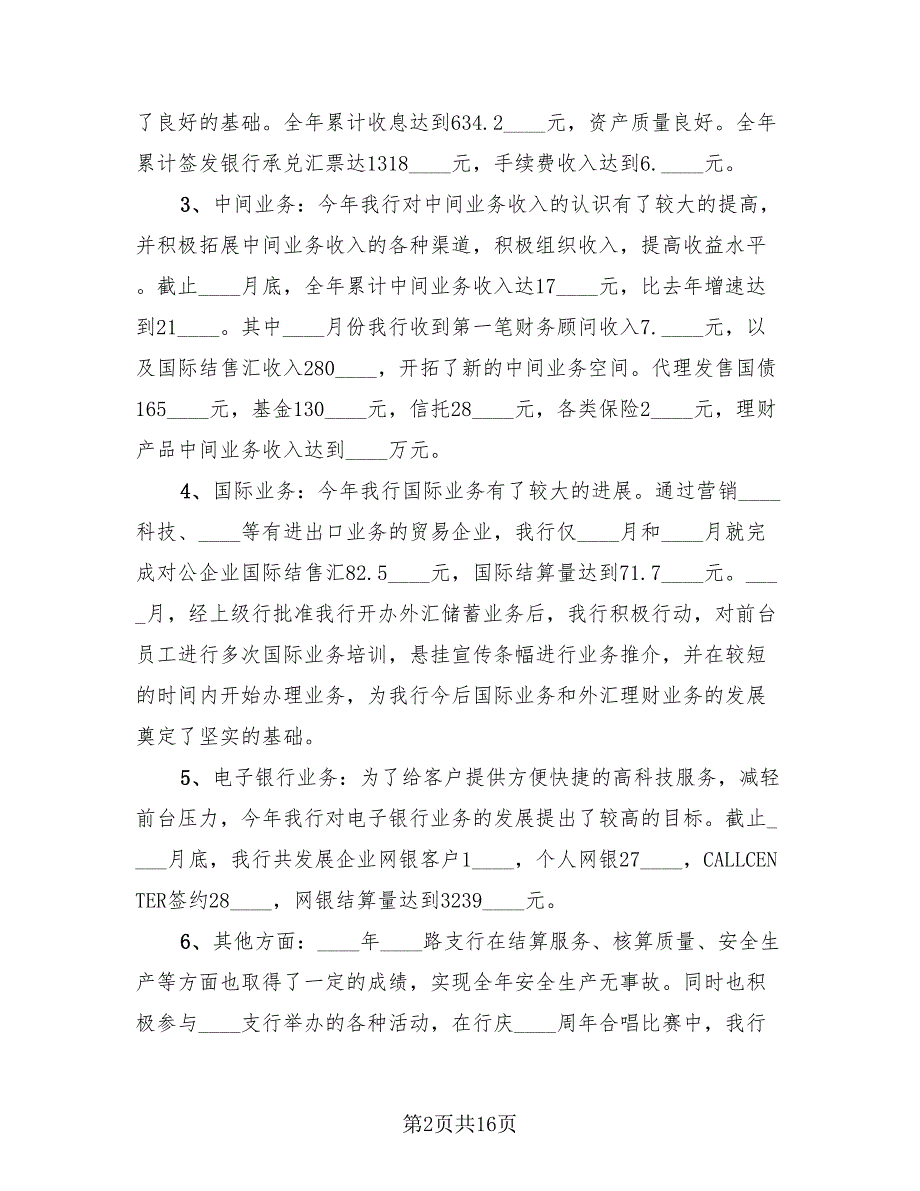 了良好的基础。全年累计收息达到634.2____元，资产质量良好。全年
累计签发银行承兑汇票达1318____元，手续费收入达到6.____元。
3、中间业务：今年我行对中间业务收入的认识有了较大的提高，
并积极拓展中间业务收入的各种渠道，积极组织收入，提高收益水平
。截止____月底，全年累计中间业务收入达17____元，比去年增速达
到21____。其中____月份我行收到第一笔财务顾问收入7.____元，以
及国际结售汇收入280____，开拓了新的中间业务空间。代理发售国债
165____元，基金130____元，信托28____元，各类保险2____元，理财
产品中间业务收入达到____万元。
4、国际业务：今年我行国际业务有了较大的进展。通过营销____
科技、____等有进出口业务的贸易企业，我行仅____月和____月就完
成对公企业国际结售汇82.5____元，国际结算量达到71.7____元。___
_月，经上级行批准我行开办外汇储蓄业务后，我行积极行动，对前台
员工进行多次国际业务培训，悬挂宣传条幅进行业务推介，并在较短
的时间内开始办理业务，为我行今后国际业务和外汇理财业务的发展
奠定了坚实的基础。
5、电子银行业务：为了给客户提供方便快捷的高科技服务，减轻
前台压力，今年我行对电子银行业务的发展提出了较高的目标。截止_
___月底，我行共发展企业网银客户1____，个人网银27____，CALLCEN
TER签约28____，网银结算量达到3239____元。
6、其他方面：____年____路支行在结算服务、核算质量、安全生
产等方面也取得了一定的成绩，实现全年安全生产无事故。同时也积
极参与____支行举办的各种活动，在行庆____周年合唱比赛中，我行
第2页共16页